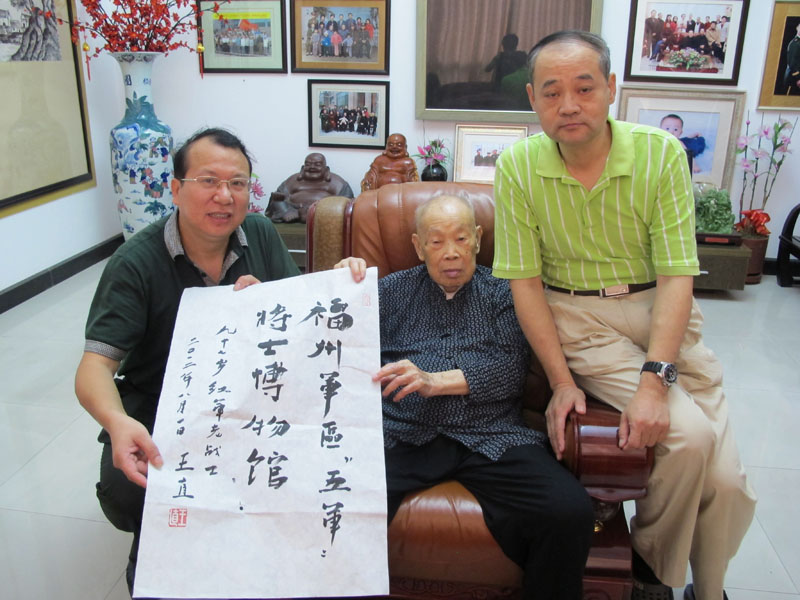 福州軍區“五軍”
将士博物馆
九十七岁红军老战士
二〇一二年八月一日 王直